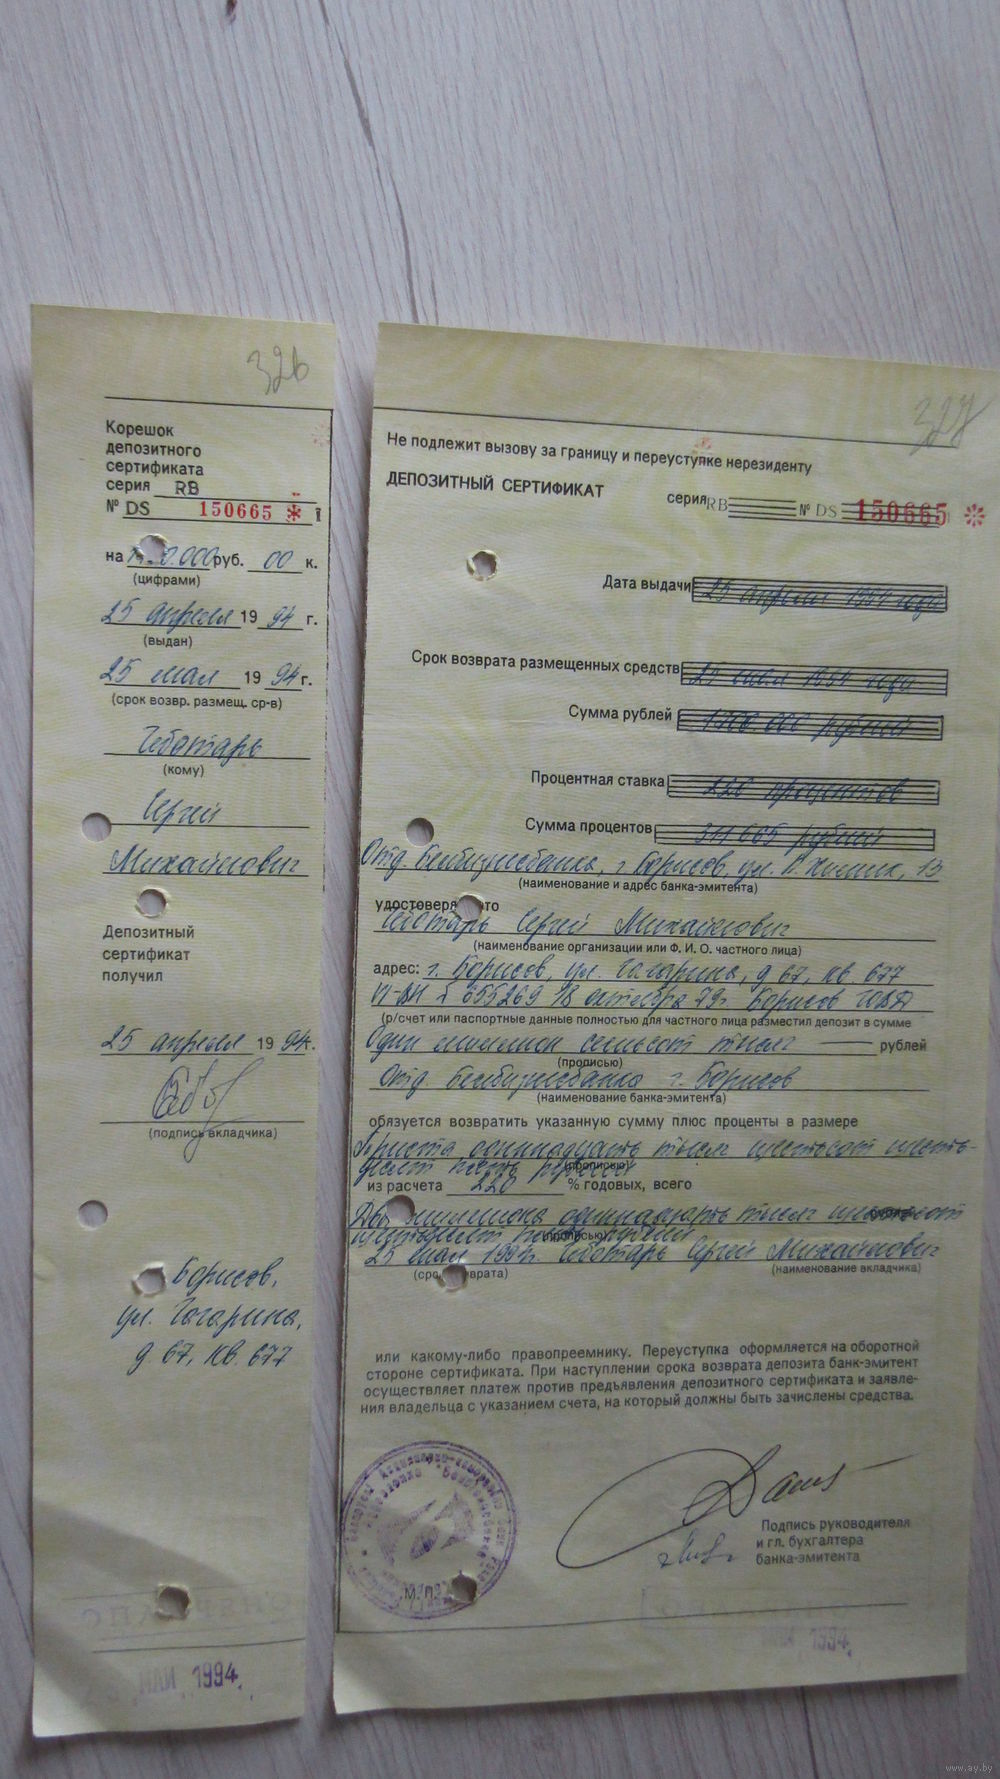 326
Корешок
депозитного
сертификата
серия RB
№ DS 150665 *
на руб. 00 к.
(цифрами)
25 апреля 1994 г.
(выдан)
25 мая 1994 г.
(срок возвр. размещ. ср-в)
Чеботарь
(кому)
Сергей
Михайлович
Депозитный
сертификат
получил
25 апреля 1994г.
(подпись вкладчика)
Борисов,
ул. Гагарина,
д 67, кв. 677
МАЙ 1994
328
Не подлежит вызову за границу и переуступке нерезиденту
ДЕПОЗИТНЫЙ СЕРТИФИКАТ серия RB № DS 150665 *
Дата выдачи 25 апреля 1994 года
Срок возврата размещенных средств 25 мая 1994 года
Сумма рублей 1700.000 рублей
Процентная ставка 220 процентов
Сумма процентов 311 665 рублей
Отд. Белбизнесбанка, г. Борисов, ул. 13
(наименование и адрес банка-эмитента)
удостоверя то
Чеботарь Сергей Михайлович
(наименование организации или Ф. И. О. частного лица)
адрес: г. Борисов, ул. Гагарина, д 67, кв. 677
655269 18 октября 79г. Борисов ГОВД
(р/счет или паспортные данные полностью для частного лица разместил депозит в сумме
Один миллион семьсот тысяч рублей
(прописью)
Отд. Белбизнесбанка г. Борисов
(наименование банка-эмитента)
обязуется возвратить указанную сумму плюс проценты в размере
Триста одиннадцать тысяч шестьсот шесть-
десят пять рублей
(прописью)
из расчета 220 % годовых, всего
Два миллиона одиннадцать тысяч шестьсот
шестьдесят пять рублей
(прописью)
25 мая 1994г. Чеботарь Сергей Михайлович
(сро зврата) (наименование вкладчика)
или какому-либо правопреемнику. Переуступка оформляется на оборотной
стороне сертификата. При наступлении срока возврата депозита банк-эмитент
осуществляет платеж против предъявления депозитного сертификата и заявле-
ния владельца с указанием счета, на который должны быть зачислены средства.
Подпись руководителя
и гл. бухгалтера
банка-эмитента
М. П.
МАЙ 1994
www.ay.by